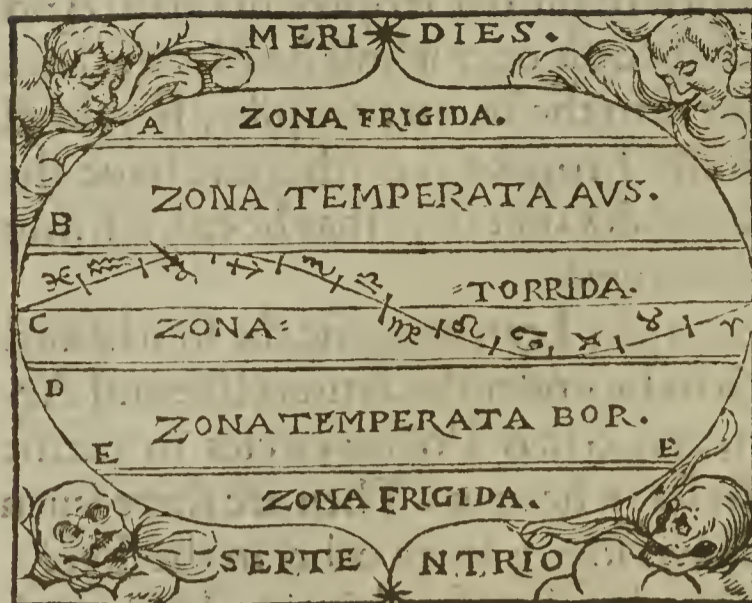 MERI DIES.
A ZONA FRIGIDA.
ZONA TEMPERATA AVS.
B
♓ ♒ ♑ ♐ ♏ ♎ =TORRIDA.
C ZONA= ♍ ♌ ♋ ♊ ♉ ♈
D
ZONA TEMPERATA BOR.
E E
ZONA FRIGIDA.
SEPTE NTRIO